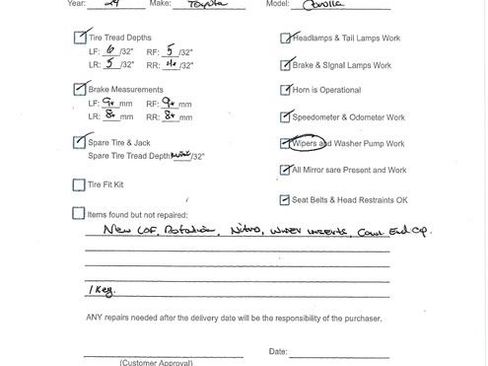 Year: 24 Make: Toyota Model: Corolla
Tire Tread Depths
LF: 6 /32" RF: 5 /32"
LR: 5 /32" RR: 4 /32"
Brake Measurements
LF: 9 mm RF: 9 mm
LR: 8 mm RR: 8 mm
Spare Tire & Jack
Spare Tire Tread Depth /32"
Tire Fit Kit
Items found but not repaired:
Headlamps & Tail Lamps Work
Brake & Signal Lamps Work
Horn is Operational
Speedometer & Odometer Work
Wipers and Washer Pump Work
All Mirror sare Present and Work
Seat Belts & Head Restraints OK
New LOF, Rotation, Nitro, Wiper inserts, Cowl End Cap.
1 Key.
ANY repairs needed after the delivery date will be the responsibility of the purchaser.
(Customer Approval)
Date: